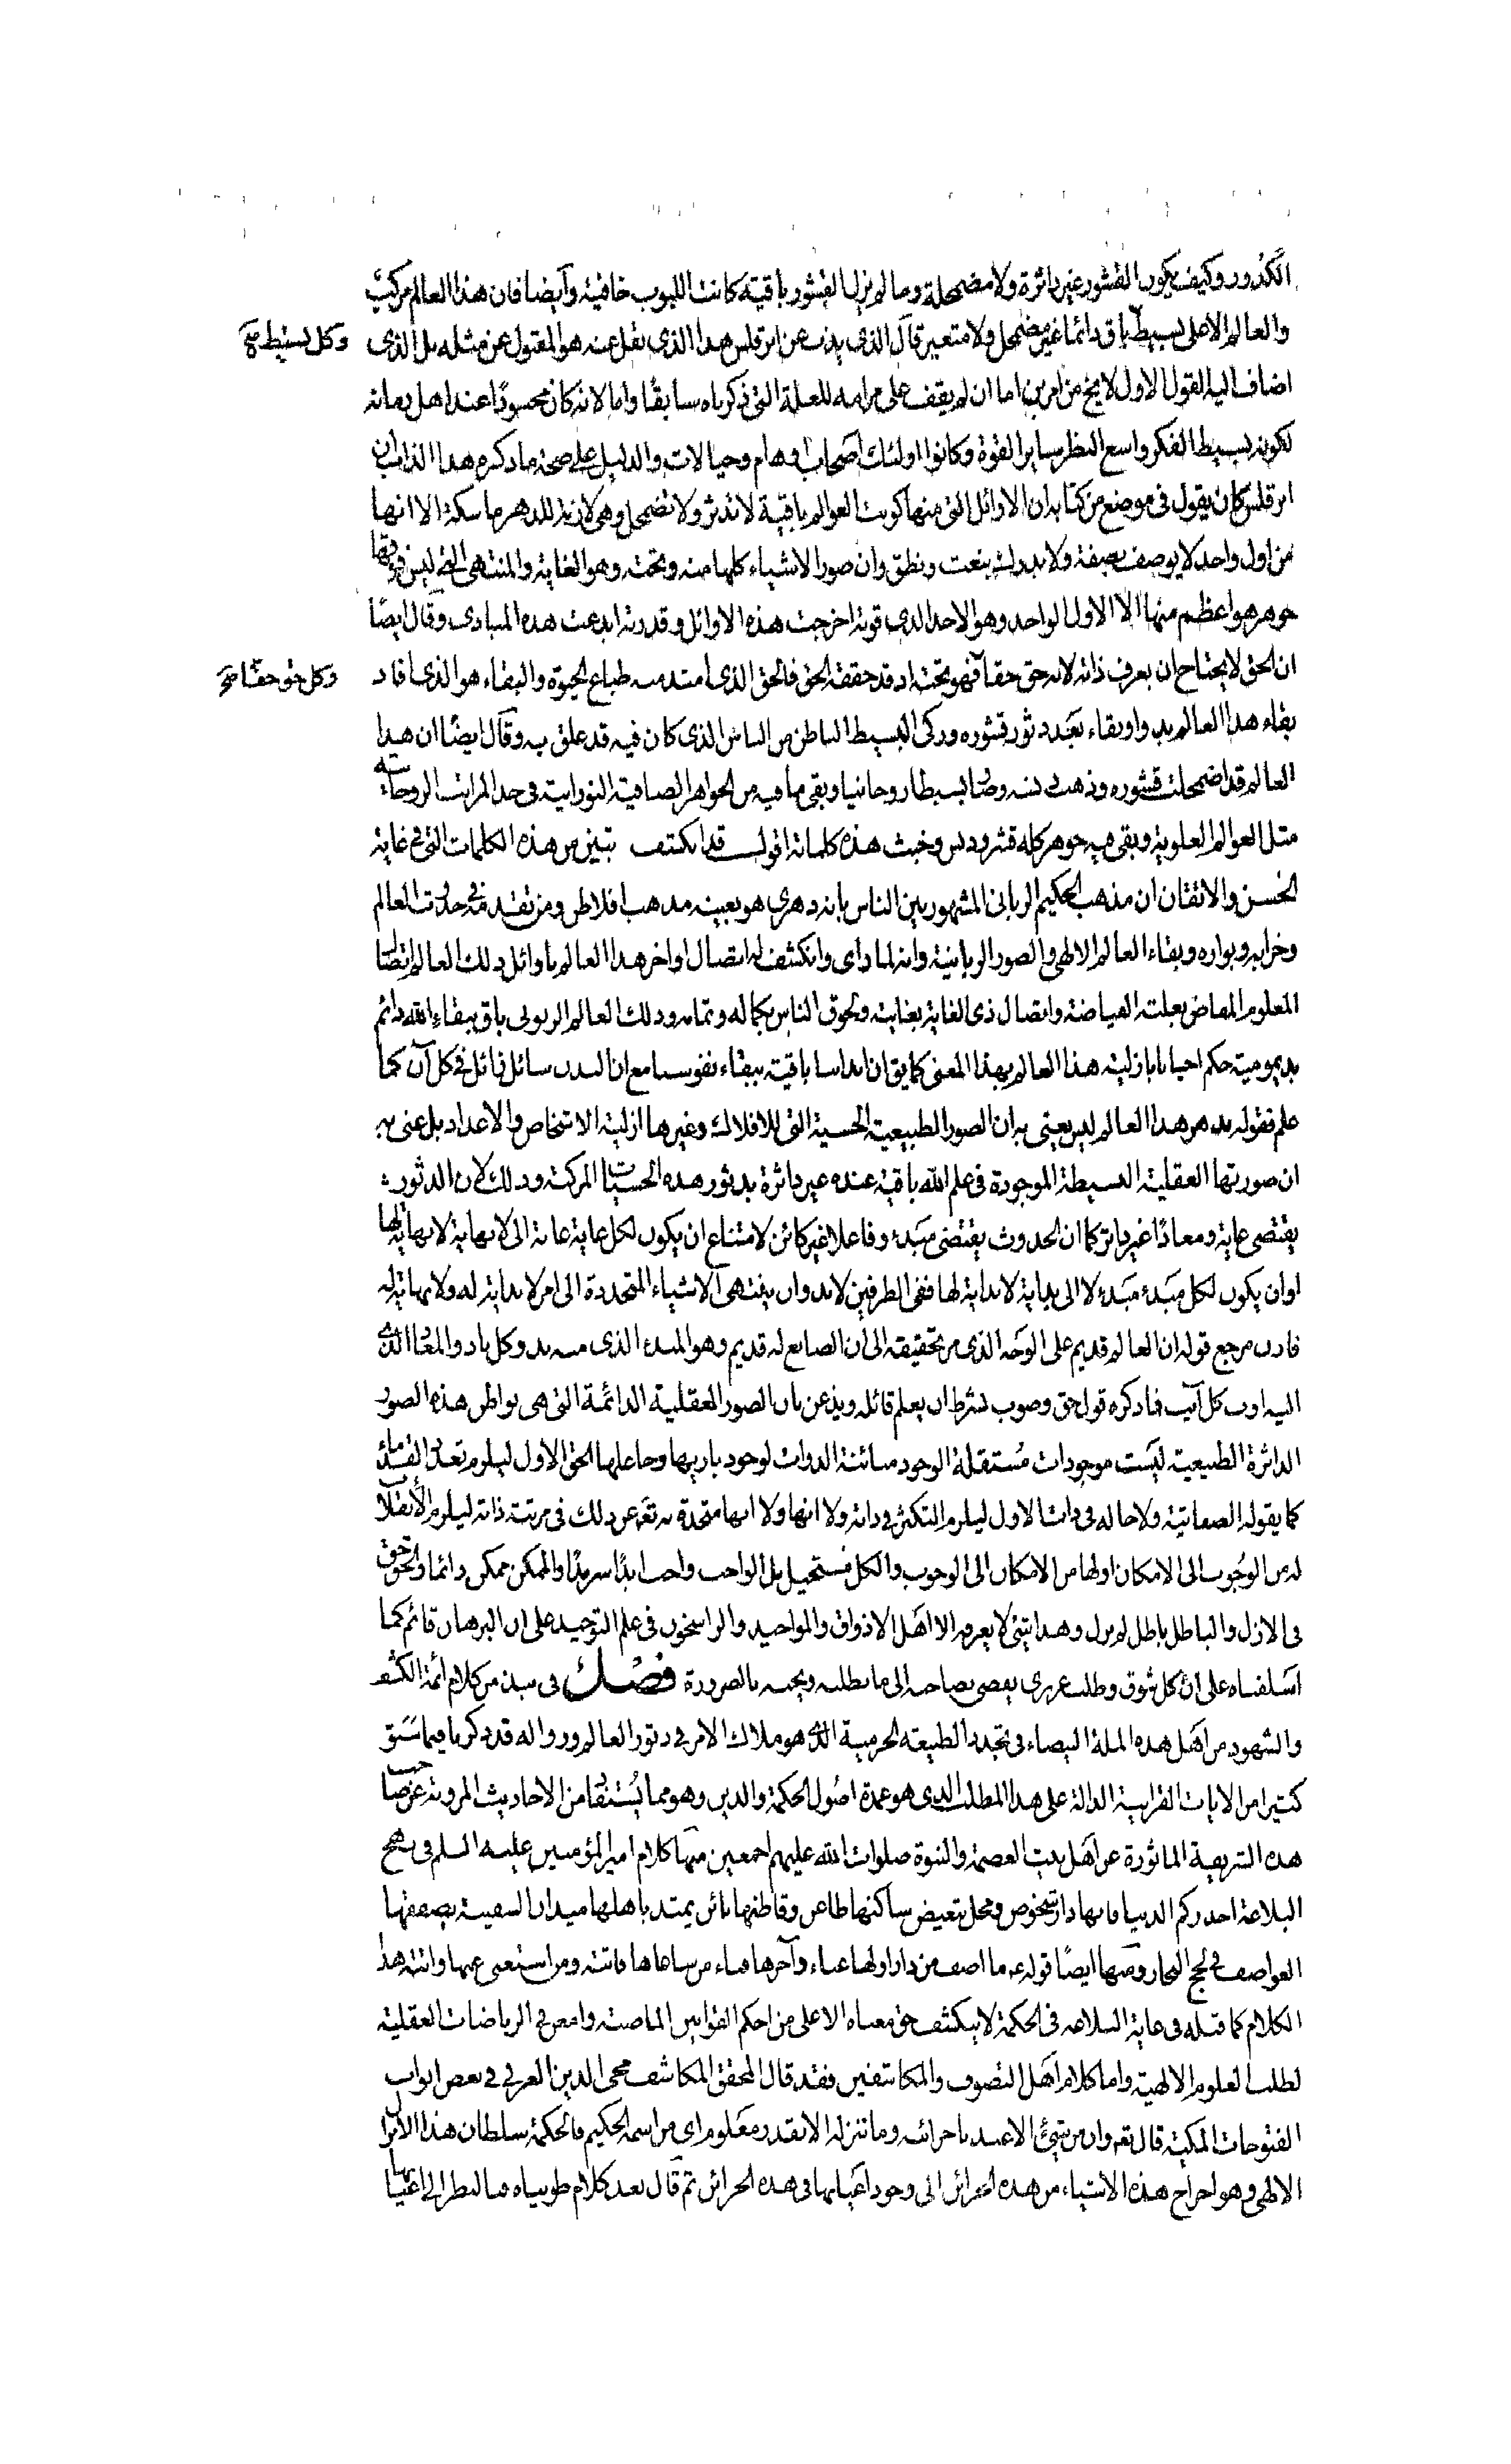 الكدور وكيف يكون القشور غير داثرة ولا مضمحلة وما لم يزل القشور باقية كانت اللبوب خافية وآيضا فان هذا العالم مركب
والعالم الاعلى بسيط باق دائما غير مضمحل ولا متغير قال الذى يذب عن ابرقلس هذا الذى نقل عنه هو المقبول عن مثله بل الذى
وكل بسيط صح
اضاف اليه القول الاول لا يخ من امرين اما ان لم يقف على مرامه للعلة التى ذكرناه سابقًا واما لانه كان محسودًا عند اهل زمانه
لكونه بسيط الفكر واسع النظر ساير القوة وكانوا اولئك اصحاب اوهام وخيالات والدليل على صحة ما ذكره هذا الذاب ان
ابرقلس كان يقول فى موضع من كتابه ان الاوائل التى منها كونت العوالم باقية لا تدثر ولا تضمحل وهى لازمة للدهر ماسكة الا انها
من اول واحد لا يوصف بصفة ولا يدرك بنعت ونطق وان صور الاشياء كلها منه وتحته وهو الغاية والمنتهى التى ليس فوقها
جوهر هو اعظم منها الا الاول الواحد وهو الاحد الذى قوته اخرجت هذه الاوائل وقدرته ابدعت هذه المبادى وقال ايضًا
ان الحق لا يحتاج ان يعرف ذاته لانه حق حقا فهو تحته اذ قد حققه الحق فالحق الذى امتد منه طباع الحيوة والبقاء هو الذى افاد
وكل حق حقا صح
بقاء هذا العالم بدوا وبقاء بعد دثور قشوره وزكى البسيط الباطن من الدنس الذى كان فيه قد علق به وقال ايضًا ان هذا
العالم قد اضمحلت قشوره وذهب دنسه وصار بسيطا روحانيا وبقى ما فيه من الجواهر الصافية النورانية فى حد المراتب الروحانية
مثل العوالم العلوية وبقى فيه جوهر كله قشر ودنس وخبث هذه كلماته اقول قد انكشف تبين من هذه الكلمات التى فى غاية
الحسن والاتقان ان مذهب الحكيم الربانى المشهور بين الناس بانه دهرى هو بعينه مذهب افلاطن ومن تقدمه فى حدوث العالم
وخرابه وبواره وبقاء العالم الالهى والصور الربانية وانه لما راى وانكشف له اتصال اواخر هذا العالم باوائل ذلك العالم اتصال
المعلوم المفاض بعلته الفياضة واتصال ذى الغاية بغايته ولحوق الناس بكماله وتمامه وذلك العالم الربوبى باق ببقاء الله دائم
بديمومية حكم احيانا بازلية هذا العالم بهذا المعنى كما يق ان ابداننا باقية ببقاء نفوسنا مع ان البدن سائل زائل فى كل آن كما
علم فقوله بدهر هذا العالم ليس يعنى به ان الصور الطبيعية الحسية التى للافلاك وغيرها ازلية الاشخاص والاعداد بل عنى به
ان صورتها العقلية البسيطة الموجودة فى علم الله باقية عنده غير داثرة بدثور هذه الحسيات المركبة وذلك لان الدثور
يقتضى غاية ومعادًا غير داثر كما ان الحدوث يقتضى مبدء وفاعلا غير كائن لامتناع ان يكون لكل غاية غاية الى لا نهاية لا نهاية لها
او ان يكون لكل مبدء مبدء لا الى بداية لا بداية لها ففى الطرفين لا بد وان ينتهى الاشياء المتجددة الى امر لا بداية له ولا نهاية له
فاذن مرجع قوله ان العالم قديم على الوجه الذى مر تحقيقه الى ان الصانع له قديم وهو المبدء الذى منه بدو كل باد والمعاد الذى
اليه اوب كل آيب فما ذكره قول حق وصوب بشرط ان يعلم قائله ويذعن بان الصور العقلية الدائمة التى هى بواطن هذه الصور
الداثرة الطبيعية ليست موجودات مستقلة الوجود مبائنة الذوات لوجود باريها وجاعلها الحق الاول ليلزم تعدد القدماء
كما يقوله الصفاتية ولا حالة فى ذات الاول ليلزم التكثر فى ذاته ولا انها ولا انها متحدة به تعه عن ذلك فى مرتبة ذاته ليلزم الانقلاب
له من الوجوب الى الامكان او لها من الامكان الى الوجوب والكل مستحيل بل الواجب واجب ابدًا سرمدًا والممكن ممكن دائما والحق حق
فى الازل والباطل باطل لم يزل وهذا شئ لا يعرفه الا اهل الاذواق والمواجيد والراسخون فى علم التوحيد على ان البرهان قائم كما
اسلفناه على ان كل شوق وطلب غريزى يفضى بصاحبه الى ما يطلبه ويحبه بالضرورة فصل فى نبذ من كلام ائمة الكشف
والشهود من اهل هذه الملة البيضاء فى تجدد الطبيعة الجرمية الذى هو ملاك الامر فى دثور العالم وزواله قد ذكرنا فيما سبق
كثيرا من الايات القرانية الدالة على هذا المطلب الذى هو عمدة اصول الحكمة والدين وهو مما يستفاد من الاحاديث المروية عن صاحب
هذه الشريعة الماثورة عن اهل بيت العصمة والنبوة صلوات الله عليهم اجمعين منها كلام امير المؤمنين عليه السلم فى نهج
البلاغة احذركم الدنيا فانها دار شخوص ومحل تنغيص ساكنها ظاعن وقاطنها بائن يمتد باهلها ميدان السفينة يصفقها
العواصف فى لجج البحار ومنها ايضًا قوله ع ما اصف من دار اولها عناء وآخرها فناء من ساعاها فاتته ومن استغنى عنها واتته هذا
الكلام كما قبله فى غاية البلاغه فى الحكمة لا ينكشف حق معناه الا على من احكم القوانين الماضية وامعن فى الرياضات العقلية
لطلب العلوم الالهية واما كلام اهل التصوف والمكاشفين فقد قال المحقق المكاشف محى الدين العربى فى بعض ابواب
الفتوحات المكية قال تعه وان من شئ الا عندنا خزائنه وما ننزله الا بقدر معلوم اى من اسمه الحكيم فالحكمة سلطان هذا الانزال
الالهى وهو اخراج هذه الاشياء من هذه الخزائن الى وجود اعيانها فى هذه الخزائن ثم قال بعد كلام طويل فبالنظر الى اعيانها